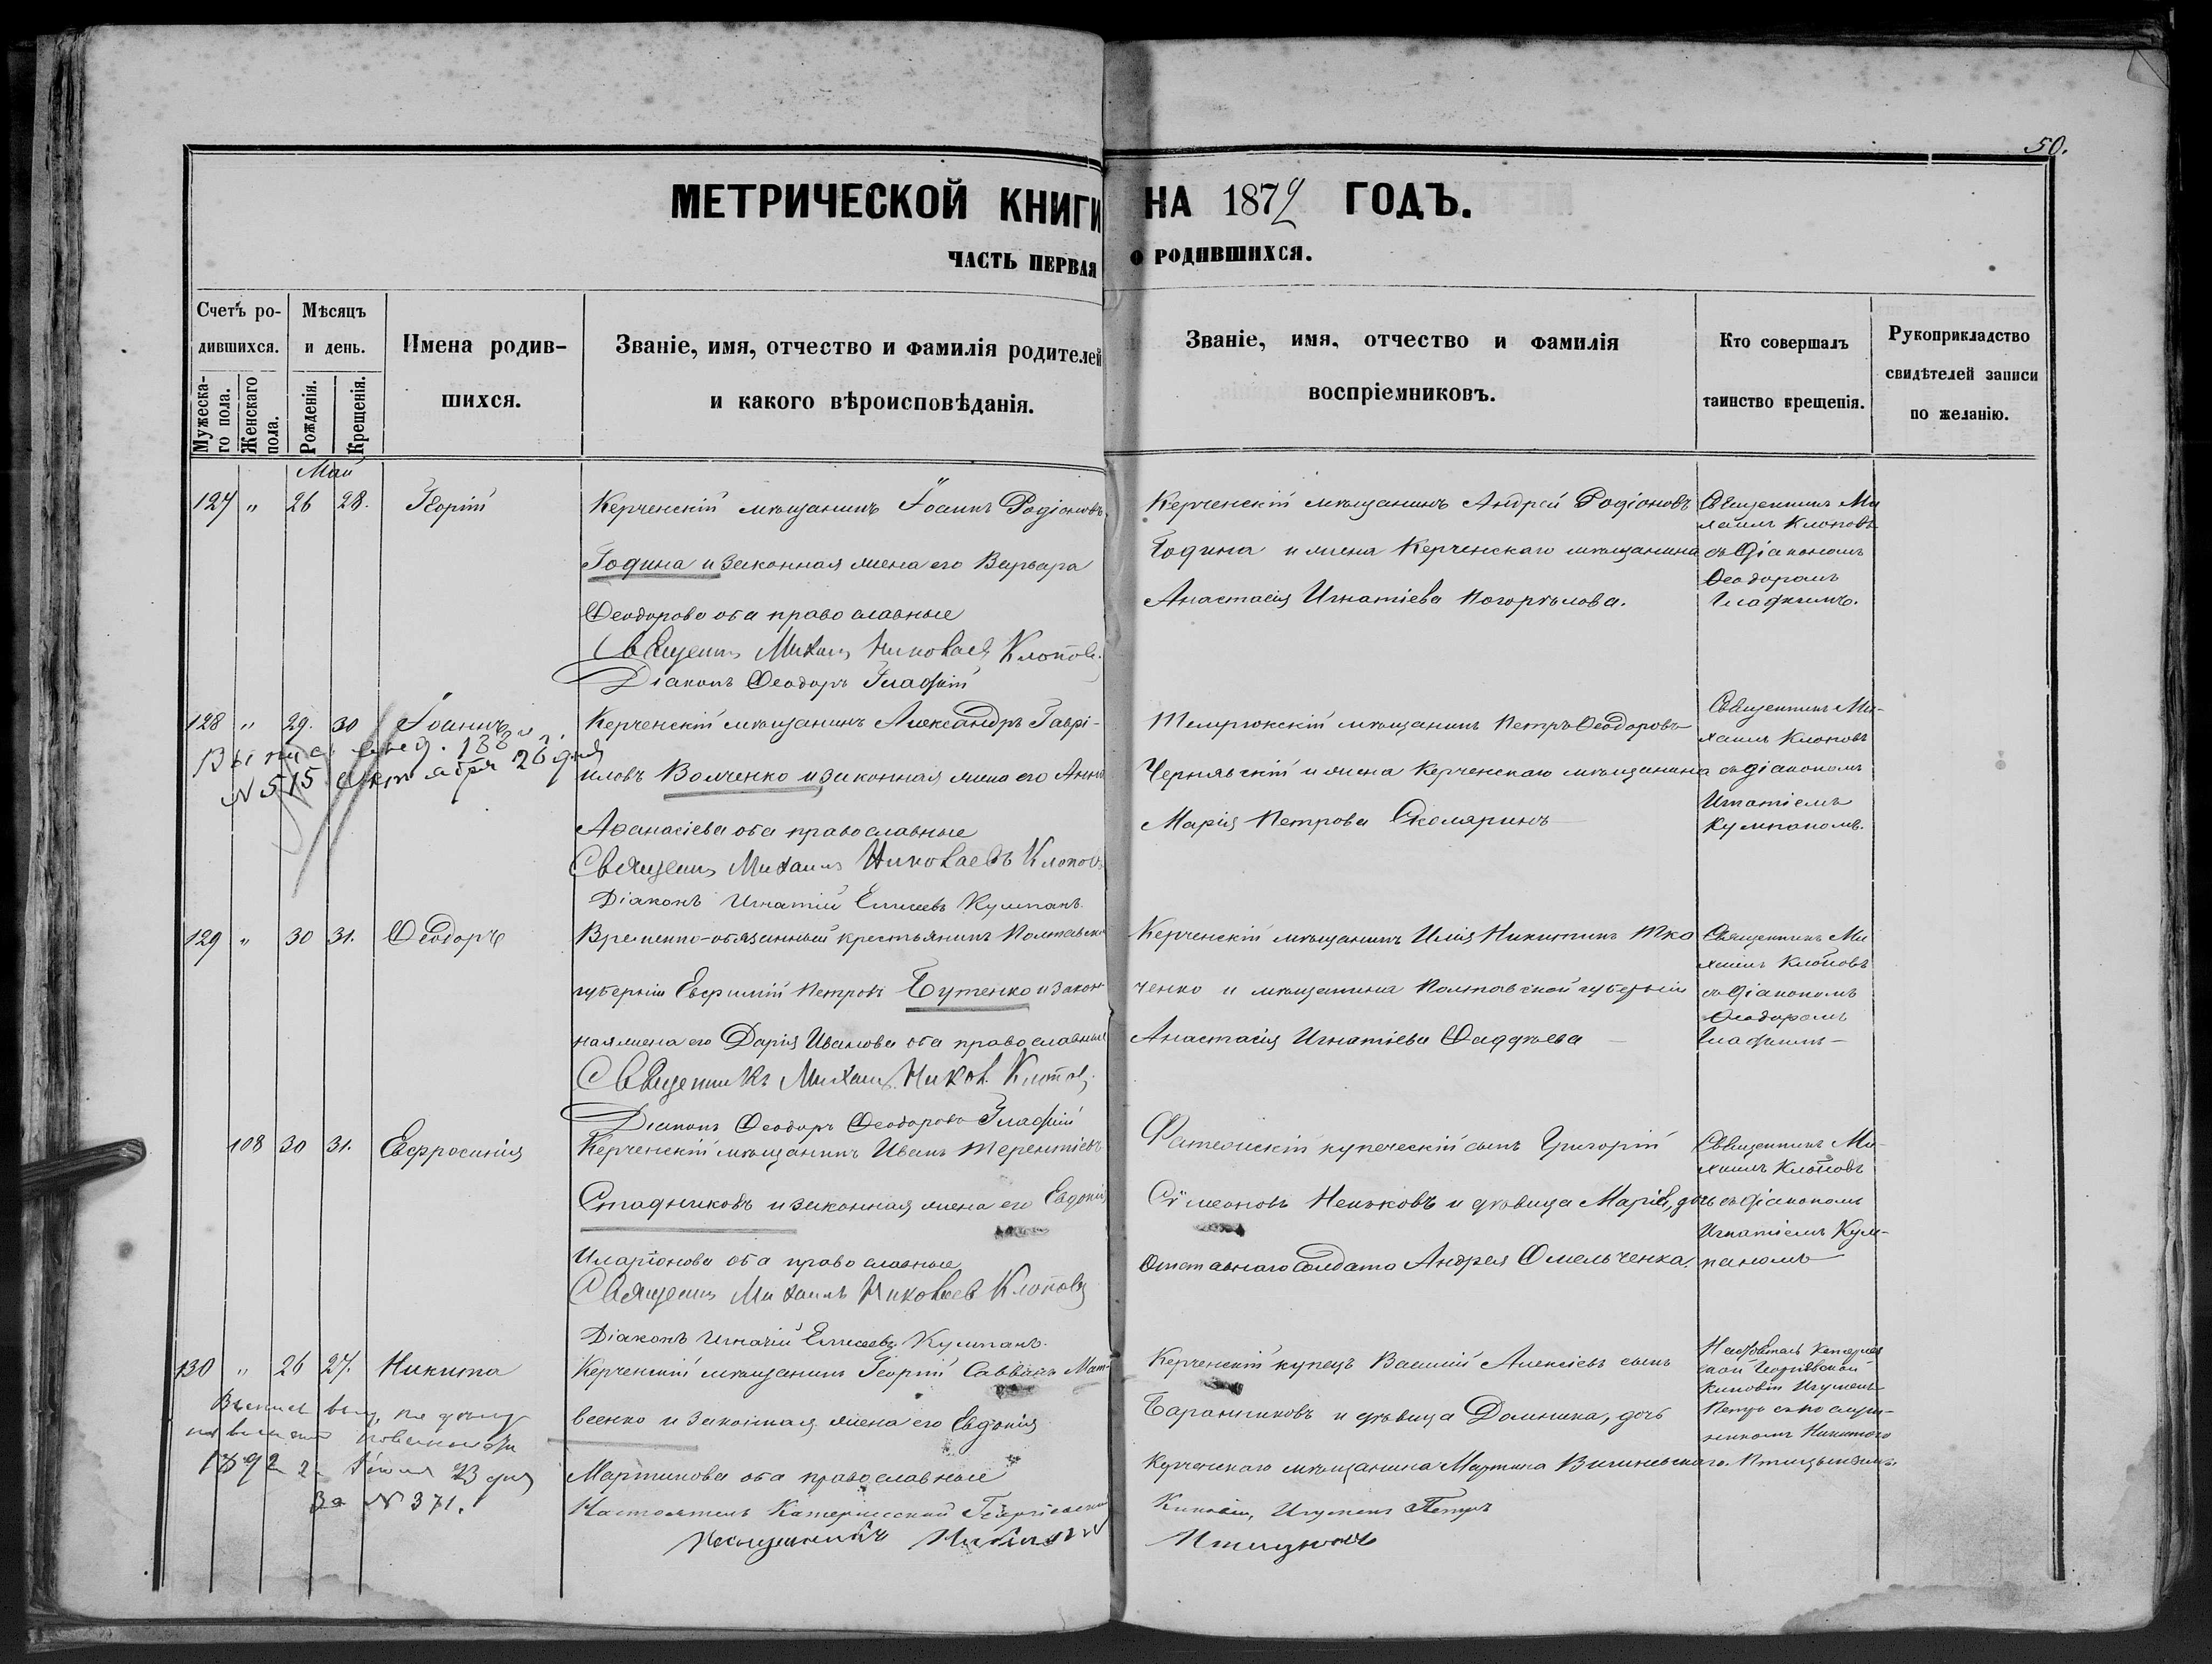 50.
МЕТРИЧЕСКОЙ КНИГИ НА 1872 ГОДЪ.
ЧАСТЬ ПЕРВАЯ О РОДИВШИХСЯ.
Счетъ родившихся.
Мужеска-го пола.
Женскаго пола.
Мѣсяцъ и день.
Рожденія.
Крещенія.
Имена родив-
шихся.
Званіе, имя, отчество и фамилія родителей
и какого вѣроисповѣданія.
Званіе, имя, отчество и фамилія
воспріемниковъ.
Кто совершалъ
таинство крещенія.
Рукоприкладство
свидѣтелей записи
по желанію.
Май
127 " 26 28. Георгій
Керченскій мѣщанинъ Іоаннъ Родіоновъ
Година и законная жена его Варвара
Ѳеодорова оба православные
Священникъ Михаилъ Николаевъ Клоповъ
Діаконъ Ѳеодоръ Глафкій
Керченскій мѣщанинъ Андрей Родіоновъ
Година и жена Керченскаго мѣщанина
Анастасія Игнатіева Погорѣлова.
Священникъ Ми
хаилъ Клоповъ
съ діакономъ
Ѳеодоромъ
128 " 29. 30 Іоаннъ
№ 515 Октября 26 дня
Керченскій мѣщанинъ Александръ Гаврі-
иловъ Волченко и законная жена его Анна
Аѳанасіева оба православные
Священникъ Михаилъ Николаевъ Клоповъ
Діаконъ Игнатій Елисеевъ Кумпанъ.
Темрюкскій мѣщанинъ Петръ Ѳеодоровъ
Чернявскій и жена Керченскаго мѣщанина
Марія Петрова Скаляринъ
Священникъ Ми-
хаилъ Клоповъ
съ діакономъ
Игнатіемъ
Кумпаномъ.
129 " 30 31. Ѳеодоръ
Временно-обязанный крестьянинъ Полтавской
губерніи Евфимій Петровъ Бутенко и закон-
ная жена его Дарія Иванова оба православные
Священникъ Михаилъ Никол. Клоповъ
Діаконъ Ѳеодоръ Ѳеодоровъ Глафкій
Керченскій мѣщанинъ Илія Никитинъ Тка
ченко и мѣщанина Полтавской губерніи
Анастасія Игнатіева Фаддѣева
Священникъ Ми
хаилъ Клоповъ
съ діакономъ
Ѳеодоромъ
108 30 31. Евфросинія
Керченскій мѣщанинъ Иванъ Терентіевъ
Стадниковъ и законная жена его Евдокія
Иларіонова оба православные
Священникъ Михаилъ Николаевъ Клоповъ
Діаконъ Игнатій Елисеевъ Кумпанъ.
купеческій сынъ Григорій
Сѵмеоновъ и дѣвица Марія, дочь
Отставнаго Солдата Андрея Омельченка.
Священникъ Ми-
хаилъ Клоповъ
съ діакономъ
Игнатіемъ Кум-
паномъ
130 " 26 27. Никита
1892 г. Іюня 23 дня
За № 371.
Керченскій мѣщанинъ Георгій Саввинъ Мат-
веенко и законная жена его Евдокія
Мартинова оба православные
Настоятель Катерлесской Георгіевской
Киновіи, Игуменъ Петръ
Керченскій купецъ Василій Алексіевъ сынъ
Баранниковъ и дѣвица Домника, дочь
Керченскаго мѣщанина Мартина
Настоятель Катерлес
ской Георгіевской
Киновіи Игуменъ
Петръ